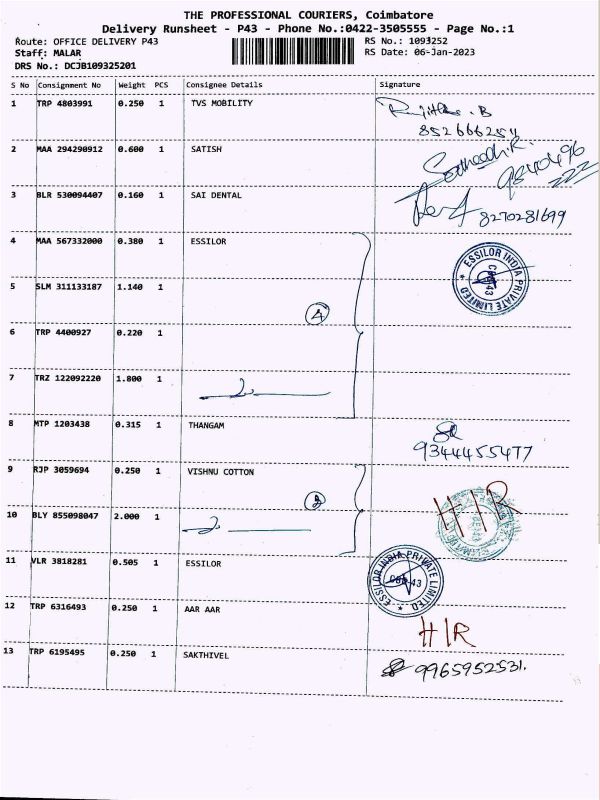 THE PROFESSIONAL COURIERS, Coimbatore
Delivery Runsheet - P43 - Phone No.:0422-3505555 - Page No.:1
Route: OFFICE DELIVERY P43 RS No.: 1093252
Staff: MALAR RS Date: 06-Jan-2023
DRS No.: DCJB109325201
S No Consignment No Weight PCS Consignee Details Signature
1 TRP 4803991 0.250 1 TVS MOBILITY
852666254
2 MAA 294290912 0.600 1 SATISH
9840496
222
3 BLR 530094407 0.160 1 SAI DENTAL 8270281699
4 MAA 567332000 0.380 1 ESSILOR
ESSILOR INDIA PRIVATE LIMITED
5 SLM 311133187 1.140 1
4
6 TRP 4400927 0.220 1
7 TRZ 122092220 1.800 1
8 MTP 1203438 0.315 1 THANGAM
9344455477
9 RJP 3059694 0.250 1 VISHNU COTTON
2
HIR
10 BLY 855098047 2.000 1
11 VLR 3818281 0.505 1 ESSILOR
ESSILOR INDIA PRIVATE LIMITED
CBE-43
12 TRP 6316493 0.250 1 AAR AAR
HIR
13 TRP 6195495 0.250 1 SAKTHIVEL 9965952531.